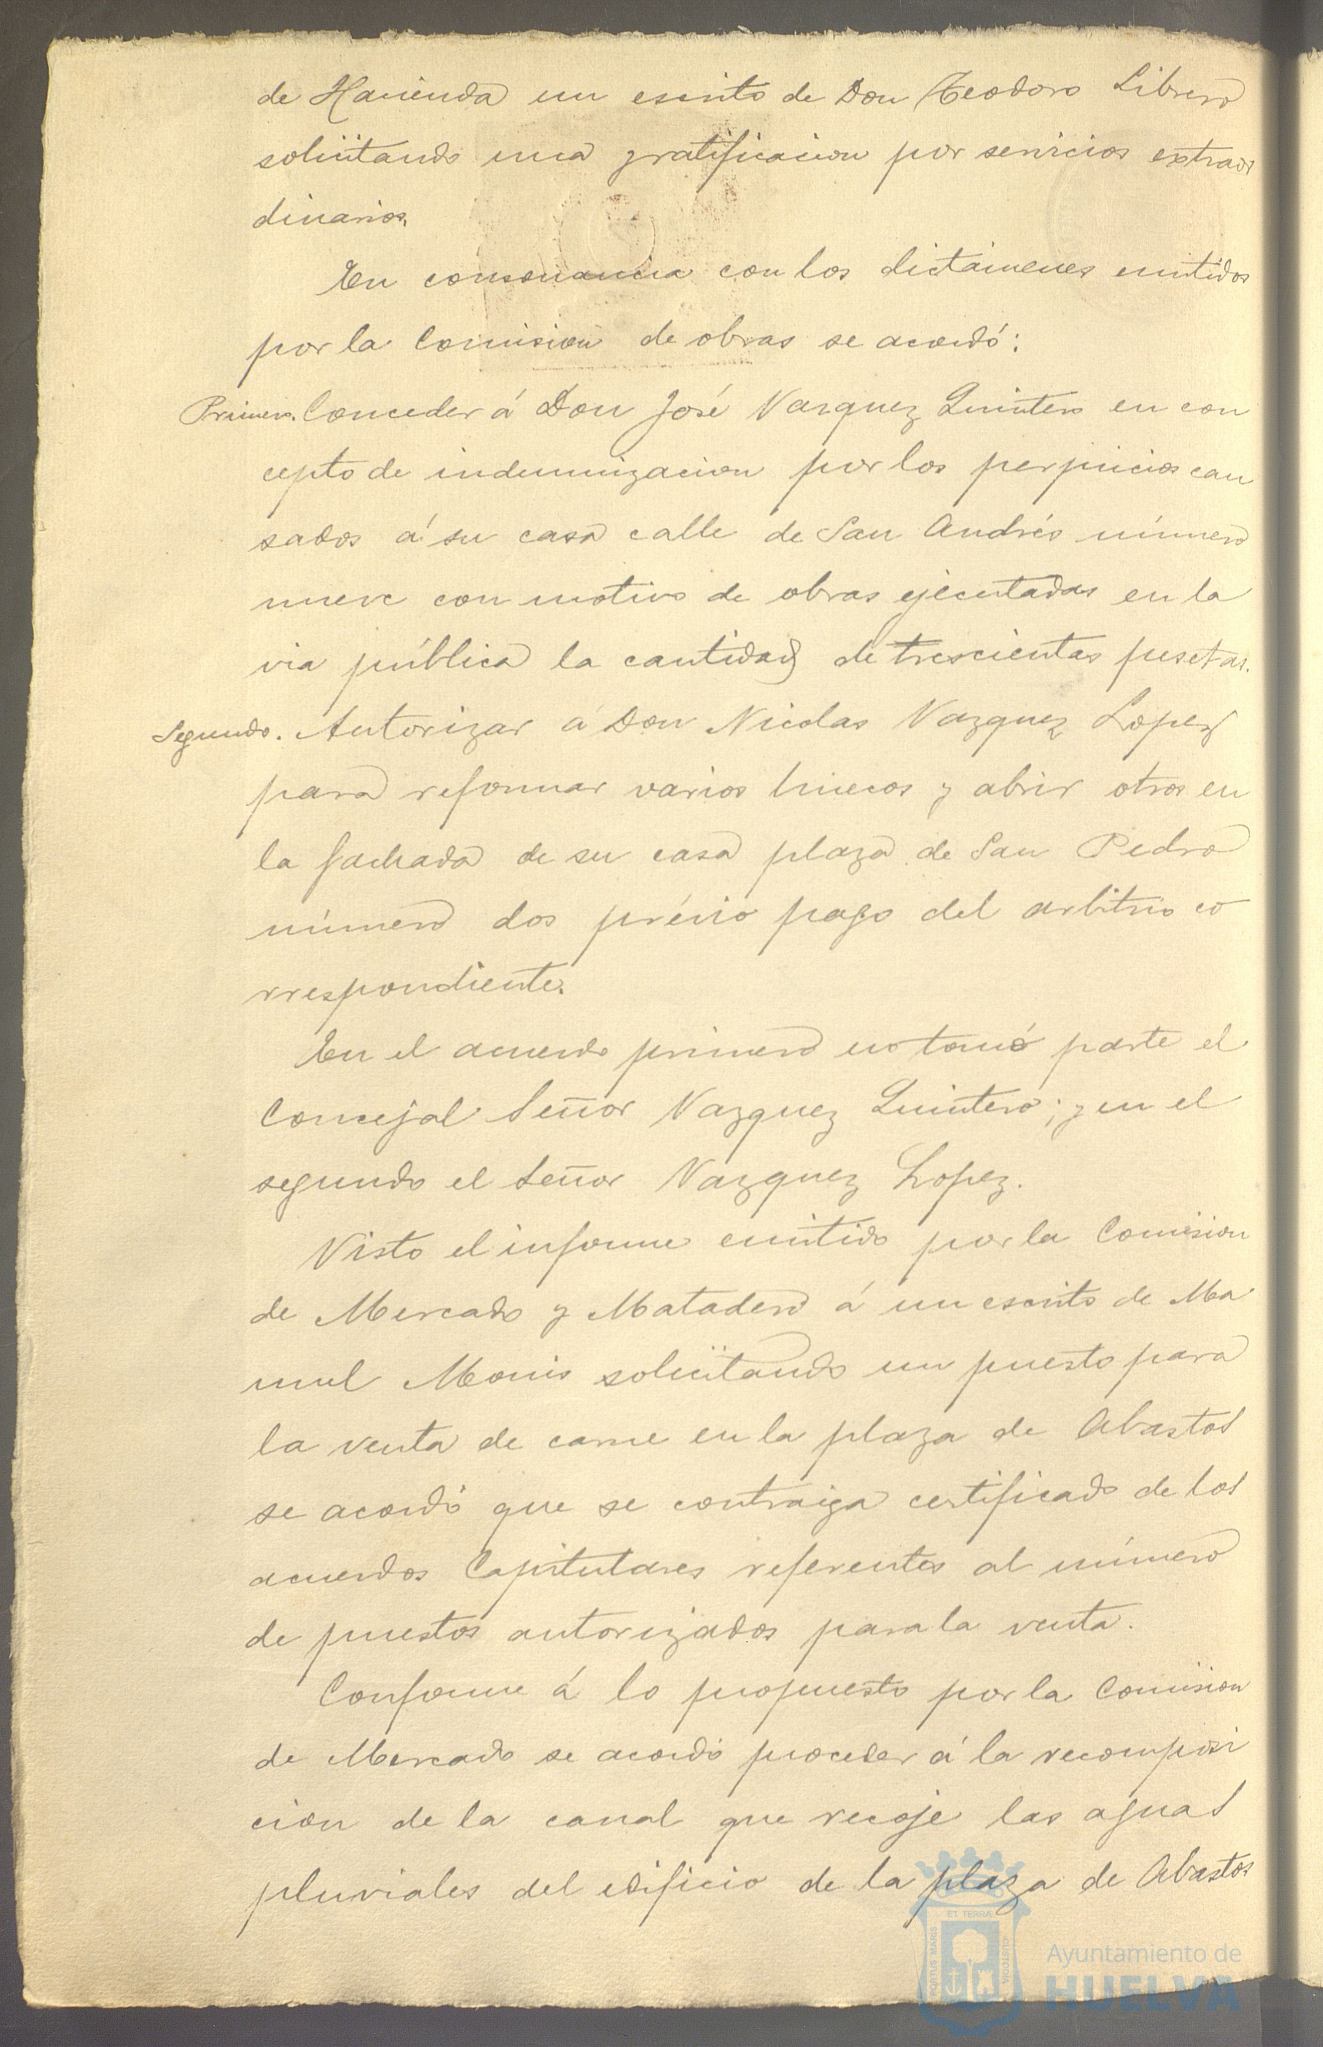 de Hacienda un escrito de Don Teodoro Librero
solicitando una gratificacion por servicios extraor
dinarios.
En consonancia con los dictámenes emitidos
por la Comision de obras se acordó:
Primero. Conceder á Don José Vazquez Quintero en con
cepto de indemnizacion por los perjuicios cau
sados á su casa calle de San Andrés número
nueve con motivo de obras ejecutadas en la
via pública la cantidad de trescientas pesetas.
Segundo. Autorizar á Don Nicolas Vazquez Lopez
para reformar varios huecos y abrir otros en
la fachada de su casa plaza de San Pedro
número dos prévio pago del arbitrio co
rrespondiente.
En el acuerdo primero no tomó parte el
Concejal Señor Vazquez Quintero; y en el
segundo el Señor Vazquez Lopez.
Visto el informe emitido por la Comision
de Mercado y Matadero á un escrito de Ma
nuel Monis solicitando un puesto para
la venta de carne en la plaza de Abastos
se acordó que se contraiga certificado de los
acuerdos Capitulares referentes al número
de puestos autorizados para la venta.
Conforme á lo propuesto por la Comision
de Mercado se acordó proceder á la recomposi
cion de la canal que recoje las aguas
pluviales del edificio de la plaza de Abastos
PORTUS MARIS ET TERRÆ CUSTODIA
Ayuntamiento de
HUELVA